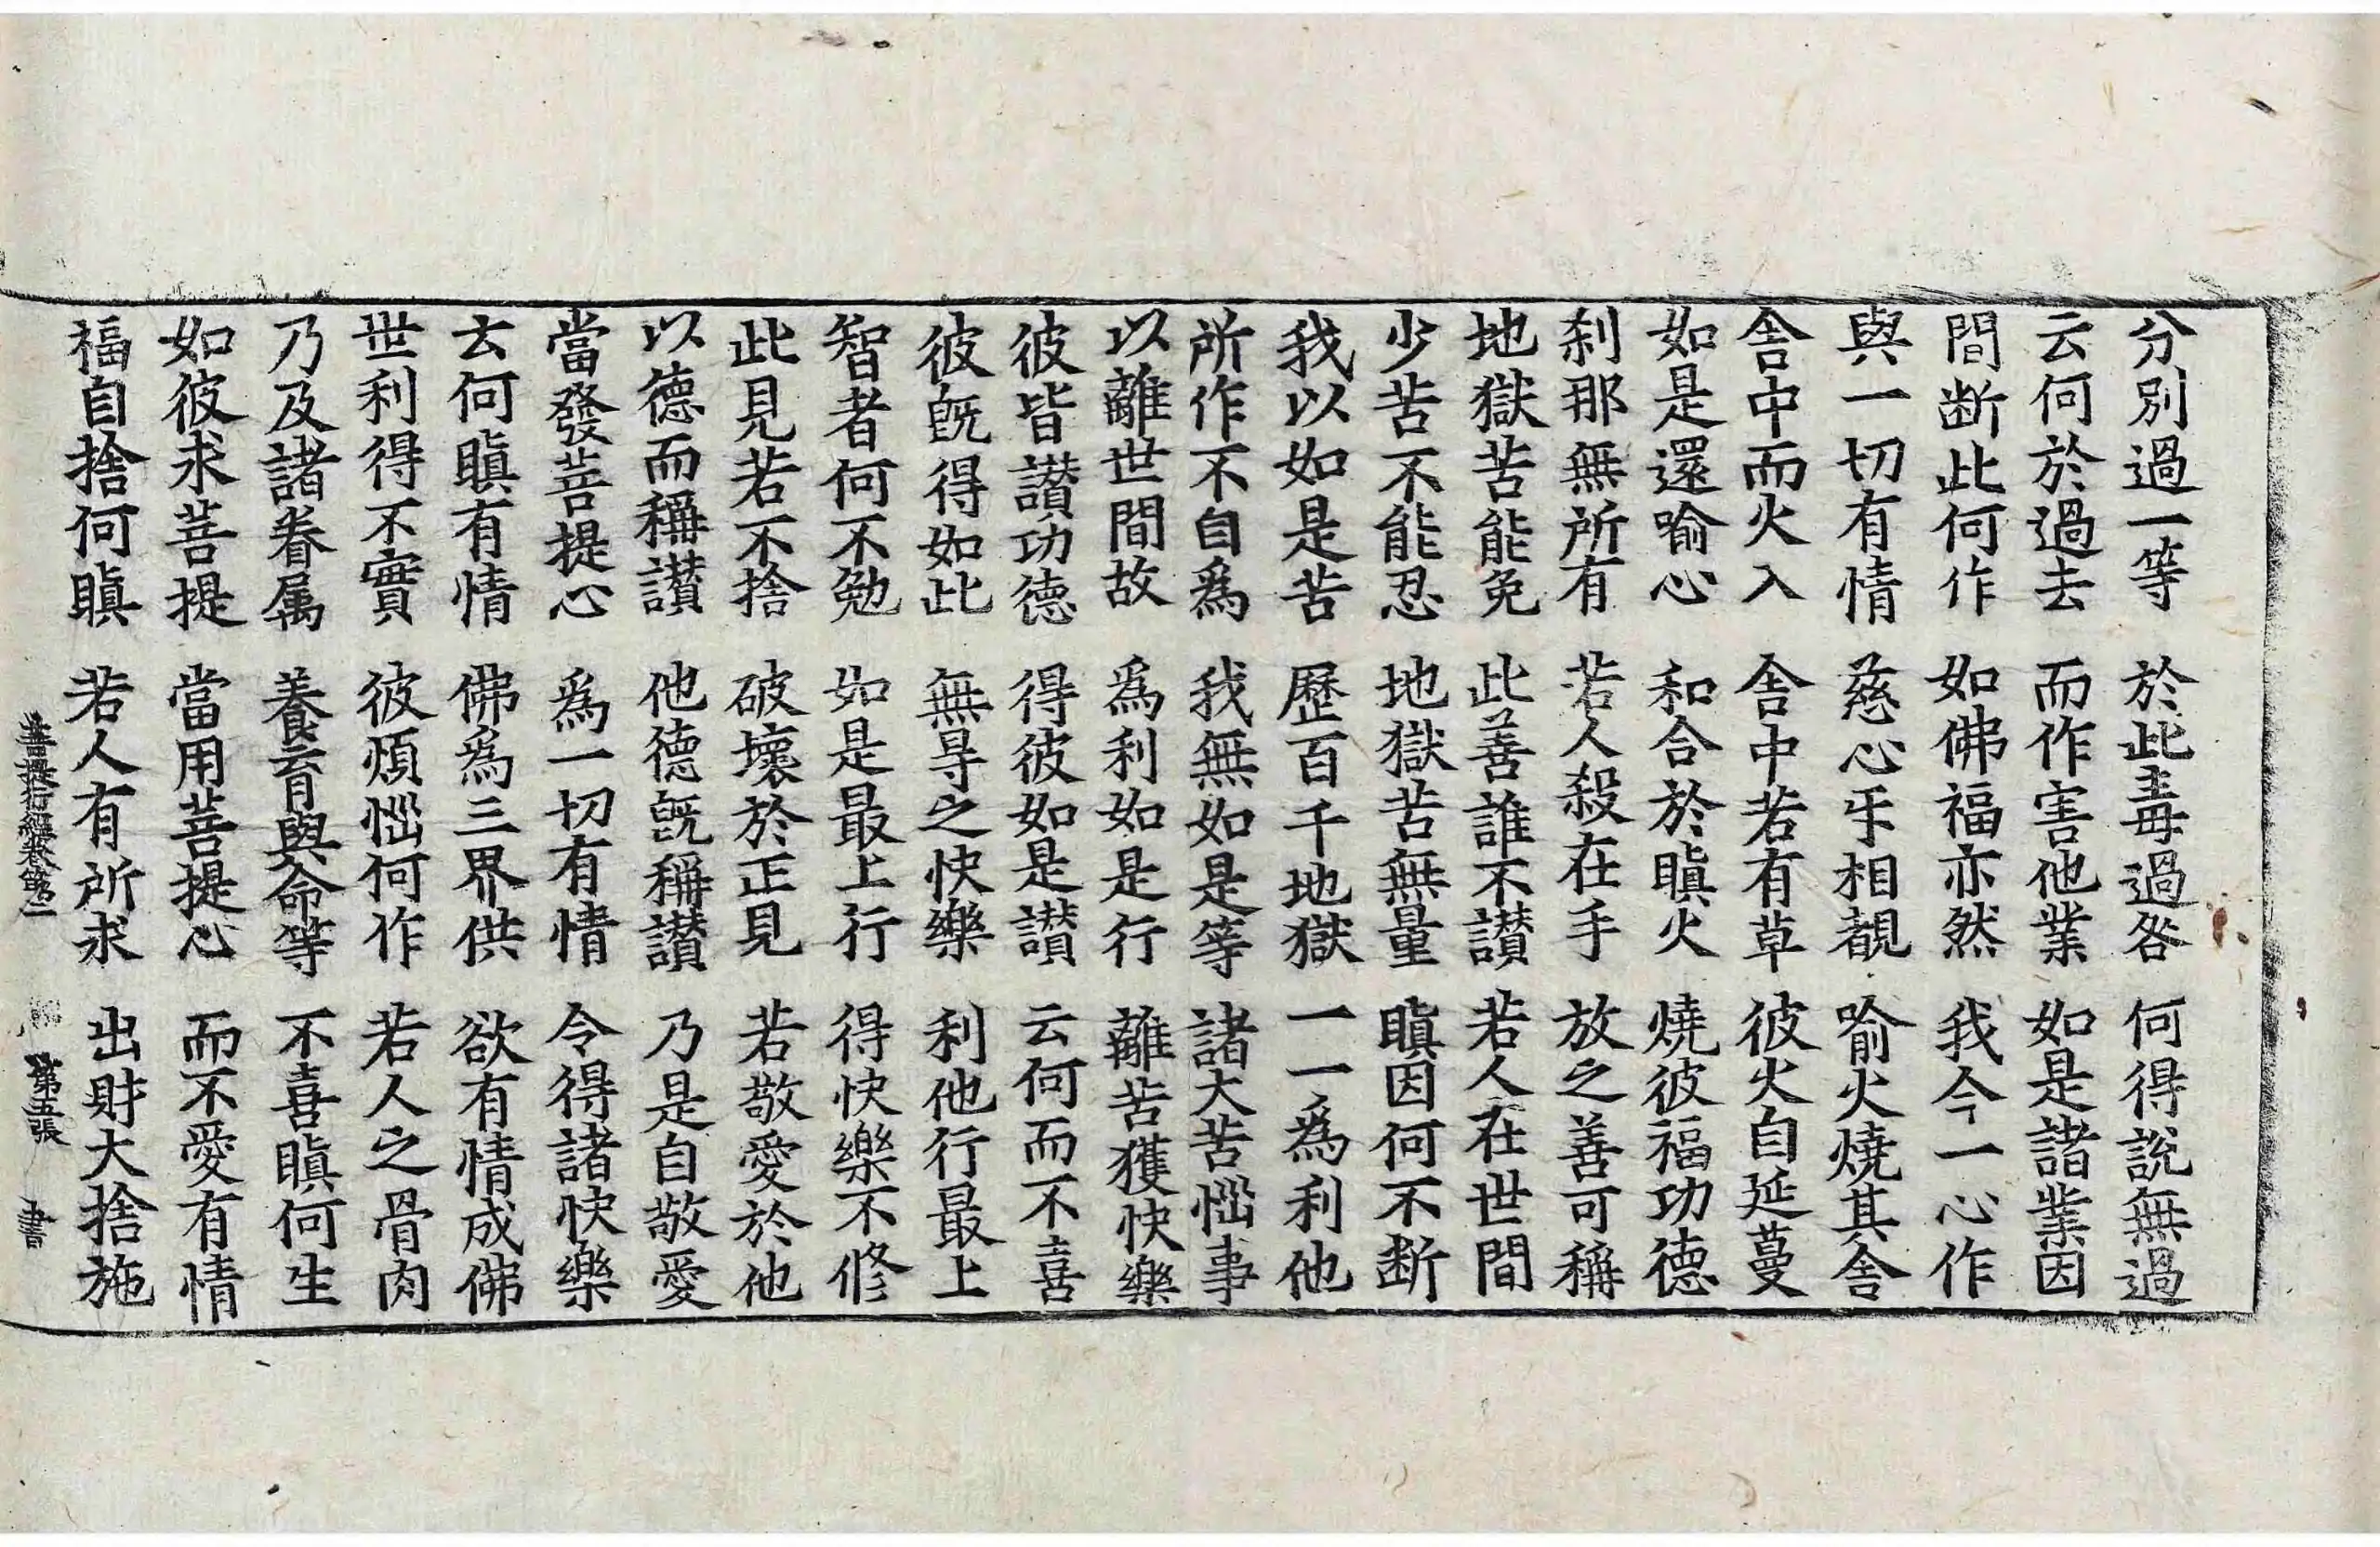 分別過一等　於此毒過咎　何得說無過
云何於過去　而作害他業　如是諸業因
間斷此何作　如佛福亦然　我今一心作
與一切有情　慈心牙相覩　喻火燒其舍
舍中而火入　舍中若有草　彼火自延蔓
如是還喻心　和合於瞋火　燒彼福功德
刹那無所有　若人殺在手　放之善可稱
地獄苦能免　此善誰不讃　若人在世間
少苦不能忍　地獄苦無量　瞋因何不断
我以如是苦　歷百千地獄　一一爲利他
所作不自爲　我無如是等　諸大苦惱事
以離世間故　爲利如是行　離苦獲快樂
彼皆讃功德　得彼如是讃　云何而不喜
彼旣得如此　無㝵之快樂　利他行最上
智者何不勉　如是最上行　得快樂不修
此見若不捨　破壞於正見　若敬愛於他
以德而稱讃　他德旣稱讃　乃是自敬愛
當發菩提心　爲一切有情　令得諸快樂
云何瞋有情　佛爲三界供　欲有情成佛
世利得不實　彼煩惱何作　若人之骨肉
乃及諸眷属　養育與命等　不喜瞋何生
如彼求菩提　當用菩提心　而不愛有情
福自捨何瞋　若人有所求　出財大捨施
菩提行經卷第二　第五張　書